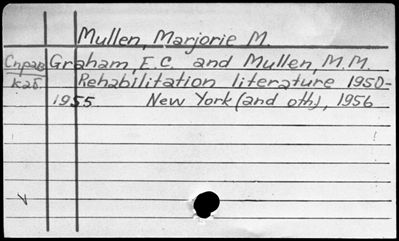 Mullen, Marjorie M.
Справ. Graham, E.C. and Mullen, M.M.
каб. Rehabilitation literature 1950-
1955. New York (and oth), 1956
V